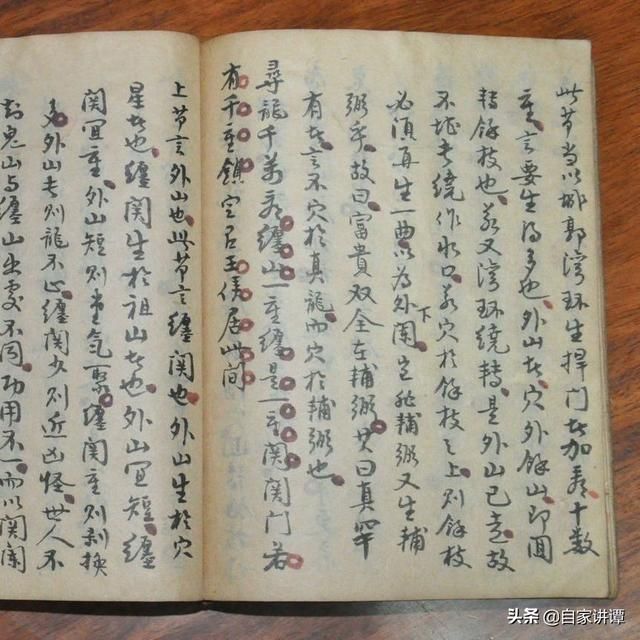 此节当以城郭湾环生捍门于加叠十数
重言要生得多也外山者穴外馀山即回
转馀枝也若又湾环绕转是外山已定故
不堪去绕作水口若穴于馀枝之上则馀枝
必须再生一两以为外关岂非辅弼又生辅
下
弼乎故曰富贵双全在辅弼其曰真罕
有者言不穴于真龙而穴于辅弼也
寻龙千万看缠山一重缠是一重关关门若
有千重锁定有王侯居此间
上节言外山也此节言缠关也外山生于穴
星者也缠关生于祖山者也外山宜短缠
关宜重外山短则堂气聚缠关重则刹换
多外山长则龙不止缠关少则近凶怪世人不
知鬼山与缠山出处不同功用不一而以关阑
头条 @自家讲谭